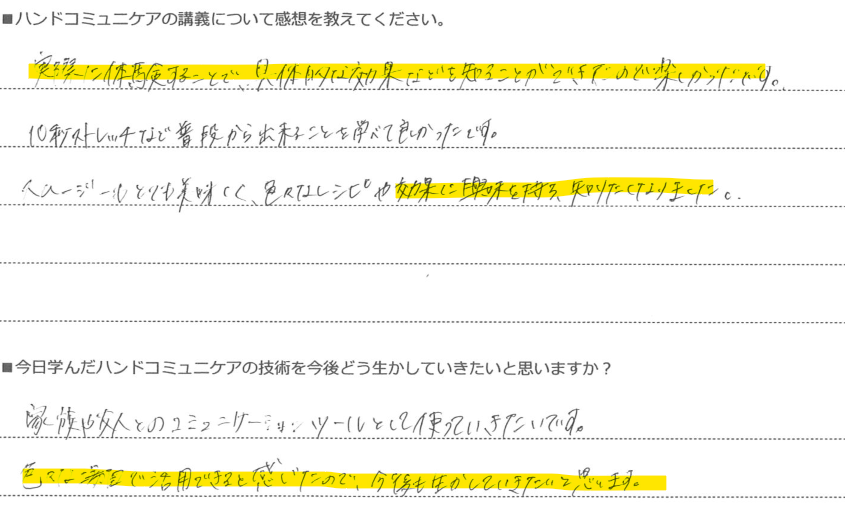 ■ハンドコミュニケアの講義について感想を教えてください。
実際に体験することで、具体的な効果などを知ることができたので楽しかったです。
10秒ストレッチなど普段から出来ることを学べて良かったです。
とても美味しく、色々なレシピや効果に興味を持ち、知りたくなりました。
■今日学んだハンドコミュニケアの技術を今後どう生かしていきたいと思いますか？
家族や友人とのコミュニケーションツールとして使っていきたいです。
色々な場面で活用できると感じたので、今後も生かしていきたいと思います。